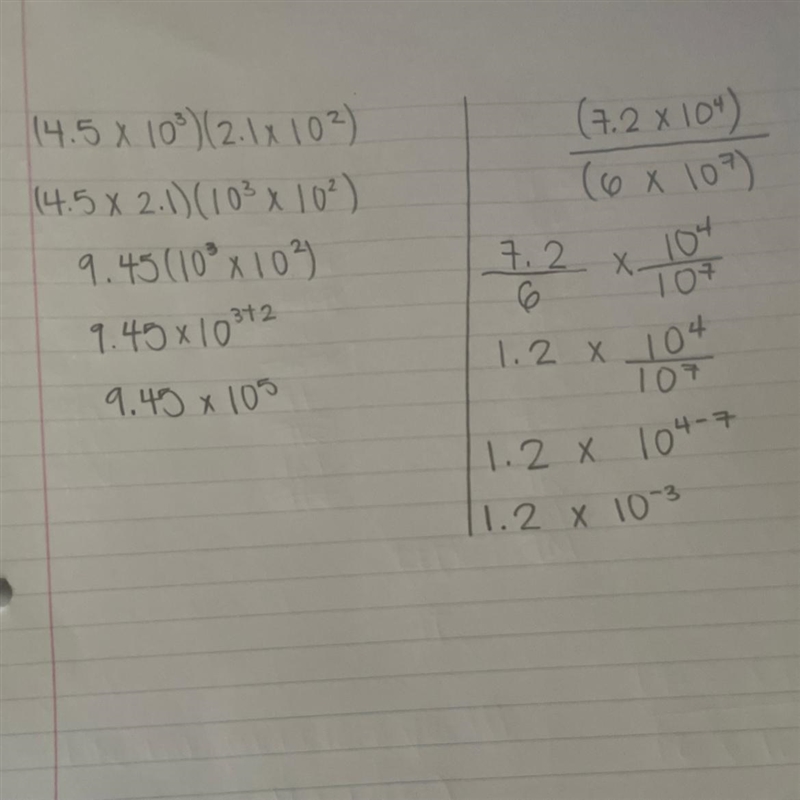 (4.5 × 10³)(2.1 × 10²)
(4.5 × 2.1)(10³ × 10²)
9.45(10³ × 10²)
9.45 × 10³⁺²
9.45 × 10⁵
(7.2 × 10⁴)
(6 × 10⁷)
7.2 × 10⁴
6 10⁷
1.2 × 10⁴
10⁷
1.2 × 10⁴⁻⁷
1.2 × 10⁻³